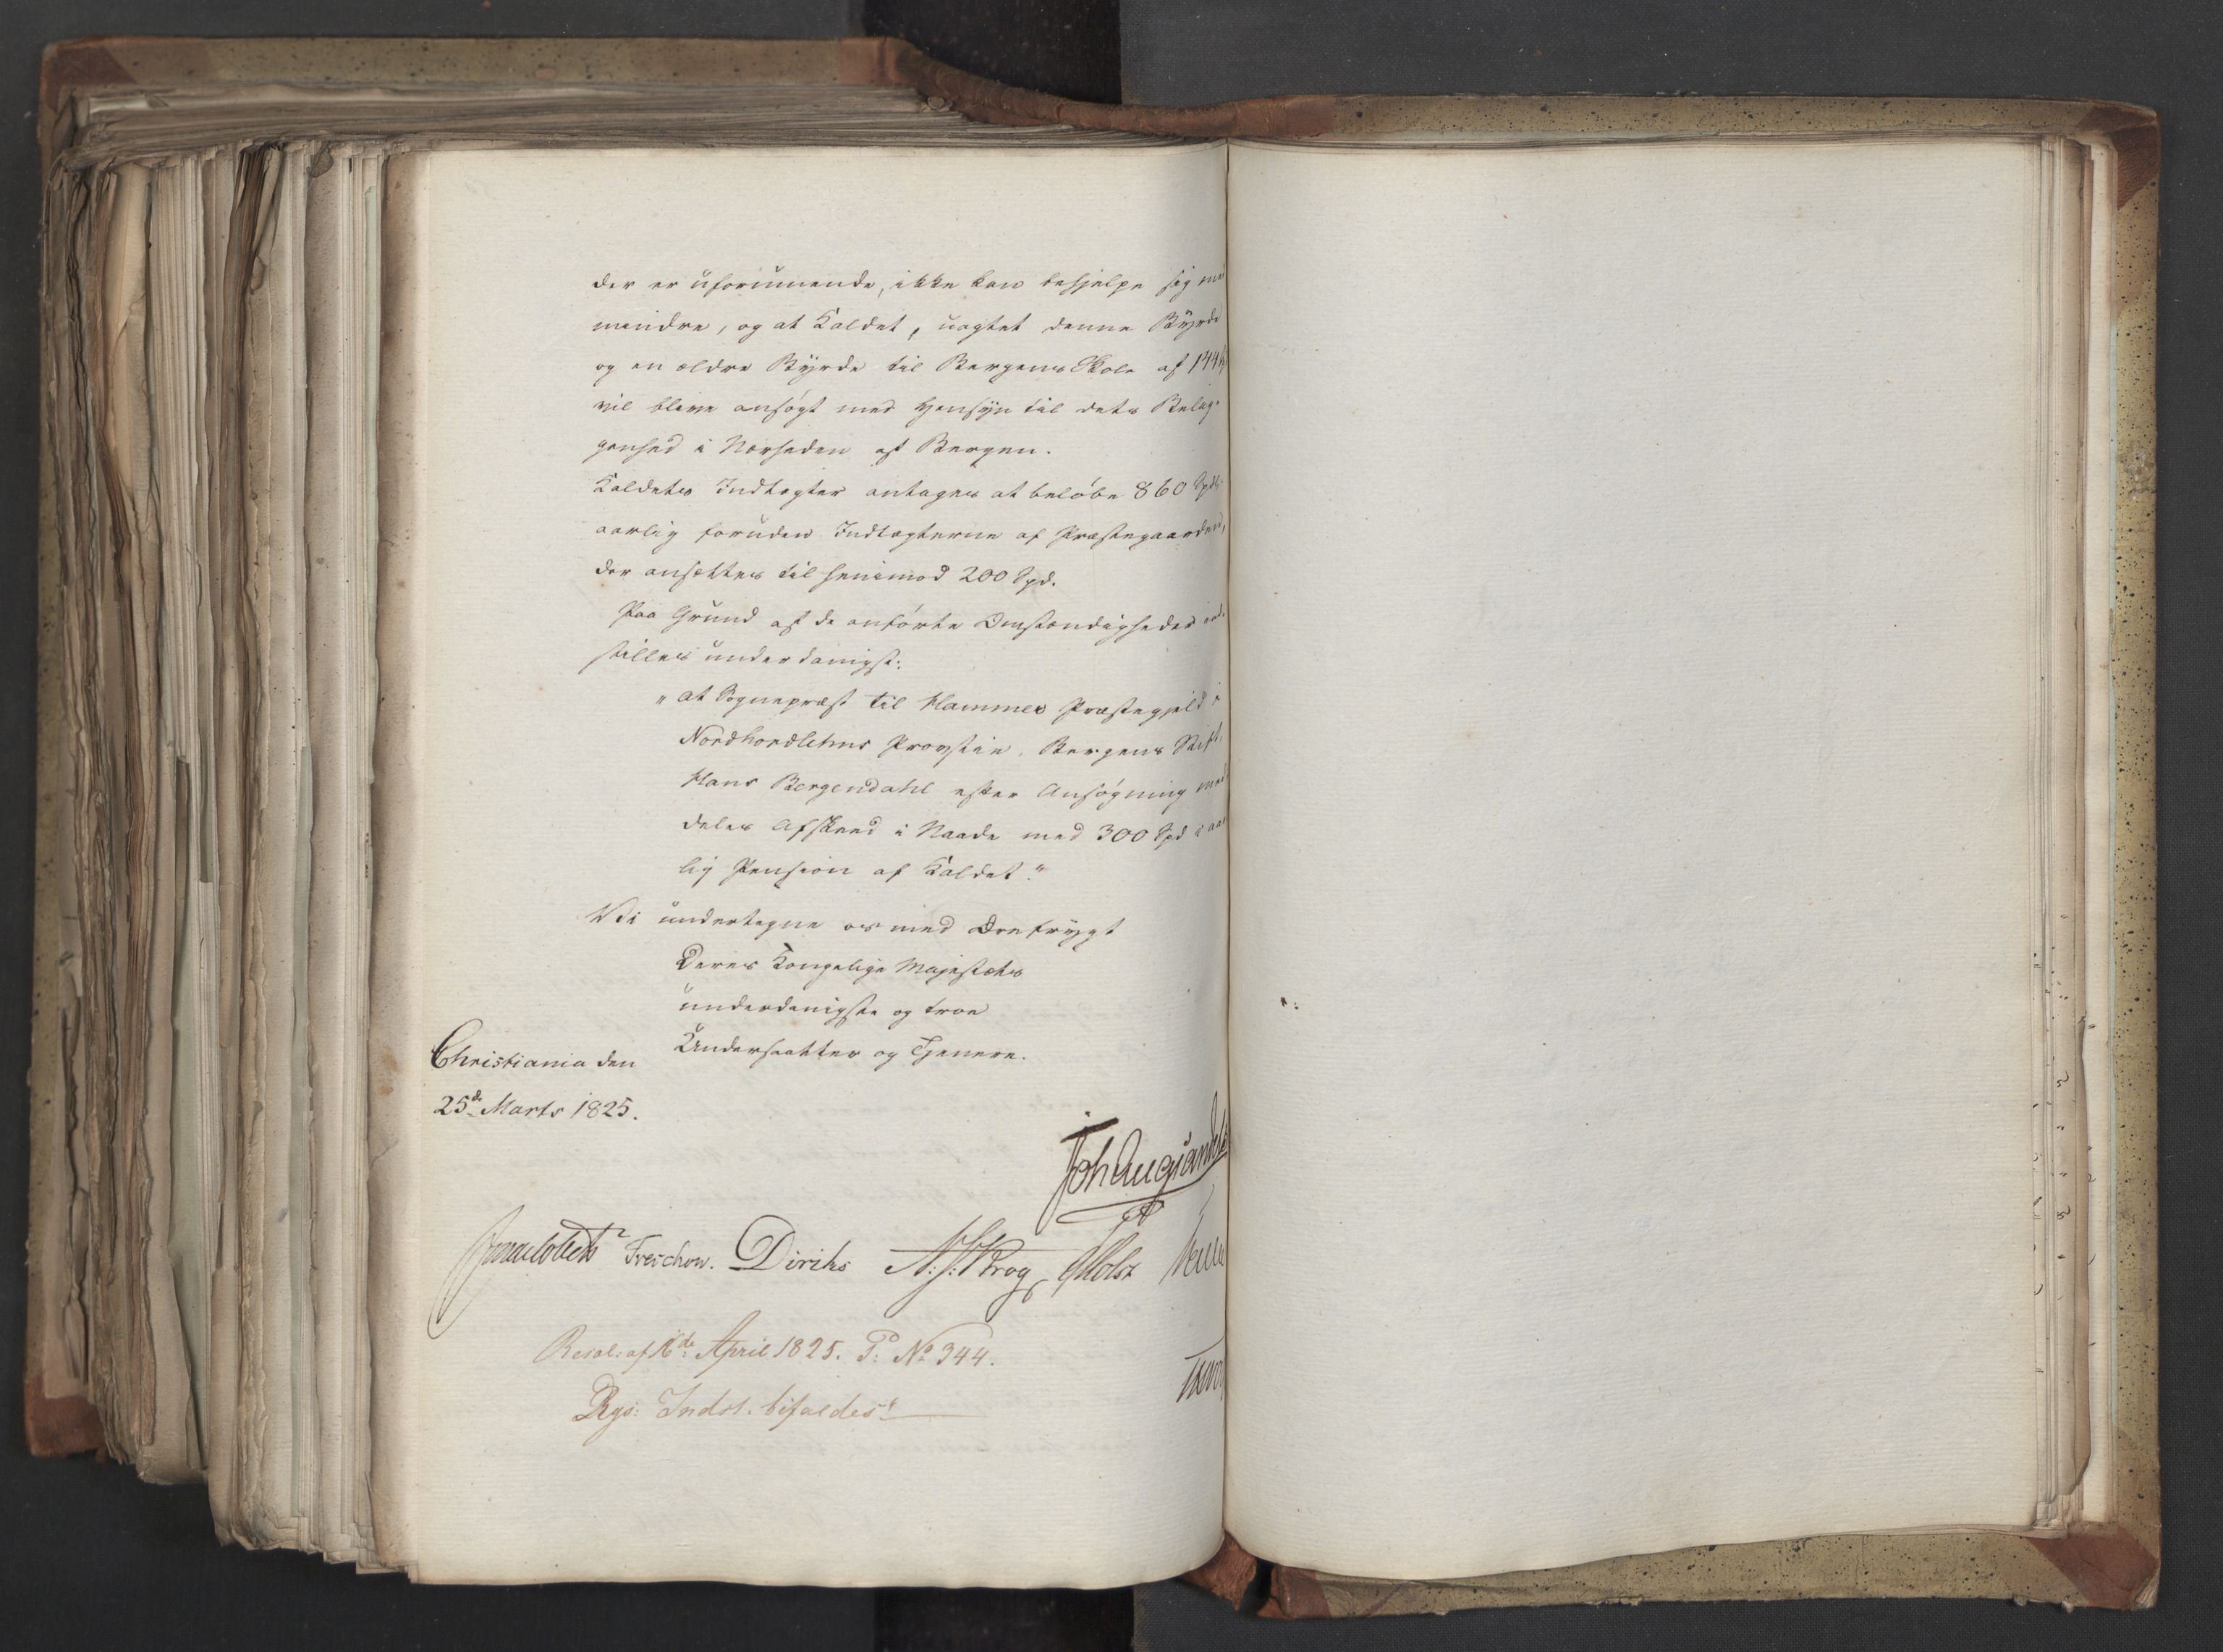 der er uformuende, ikke kan behjelpe sig med
mindre, og at Kaldet, uagtet denne Byrde
og en ældre Byrde til Bergens Skole af
vil blive ansøgt med Hensyn til dets Belig-
genhed i Nærheden af Bergen.
Kaldets Indtægter antages at beløbe 860 Spd.
aarlig foruden Indtægterne af Præstegaarden,
der ansættes til henimod 200 Spd.
Paa Grund af de anførte Omstændigheder ind-
stilles underdanigst:
"at Sognepræst til Hammer Præstegjeld i
Nordhordlehns Provstie, Bergens Stift,
Hans Bergendahl efter Ansøgning med
deles Afskeed i Naade med 300 Spd i aar
lig Pension af Kaldet."
Vi undertegne os med Ærefrygt
Deres Kongelige Majestæts
underdanigste og troe
Undersaatter og Tjenere.
Christiania den
25de Marts 1825.
Joh Aug Sandels
Treschow. Diriks Krog Holst
Resol: af 16de April 1825. P: No 344.
Rgs: Indst. bifaldes.